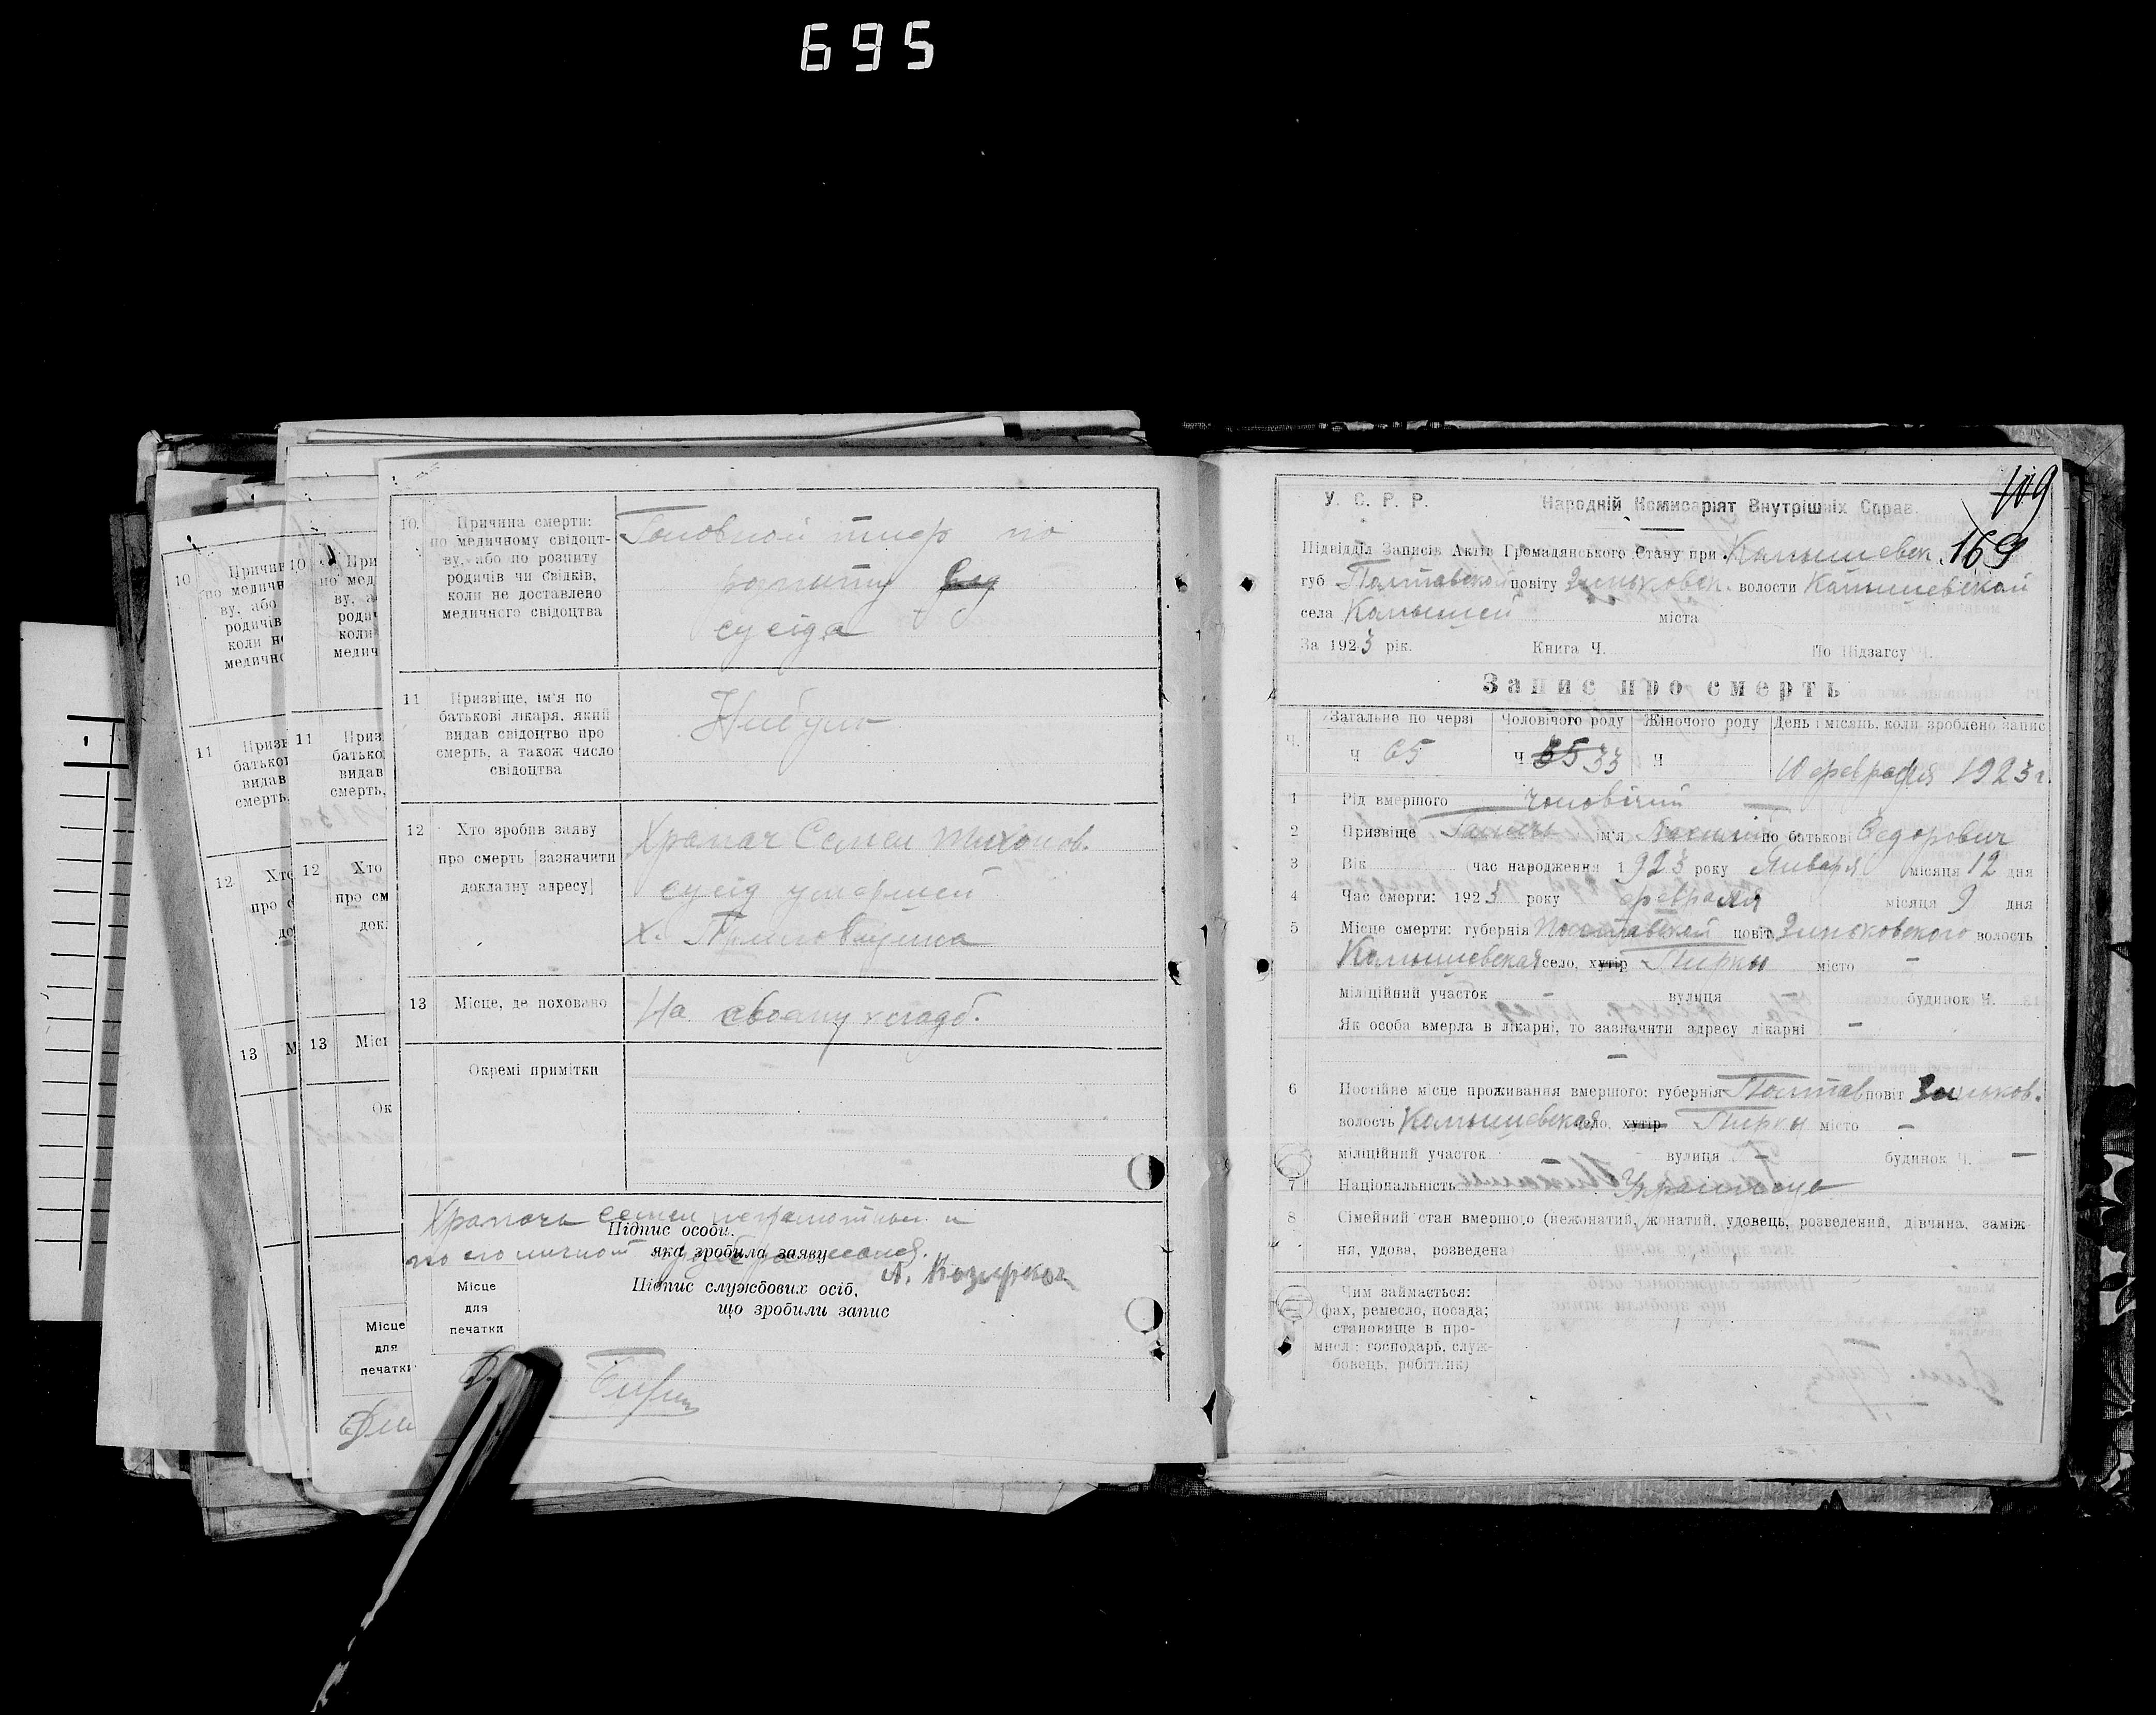 695
10. Причина смерти:
по медичному свідоцт-
ву, або по розпиту
родичів чи свідків,
коли не доставлено
медичного свідоцтва
Головной тиф по
розпиту
сусіда
11 Призвіще, ім'я по
батькові лікаря, який
видав свідоцтво про
смерть, а також число
свідоцтва
Нибуло
12 Хто зробив заяву
про смерть [зазначити
докладну адресу]
Храпач Семен Тихонов.
сусід умершей
х.
13 Місце, де поховано
На своему кладб.
Окремі примітки
Храпачь Семен неграмотный и
Підпис особи,
по его личной
яка зробила заяву
Підпис службових осіб, А.
що зробили запис
Місце
для
печатки
10
Причин
по медичн
ву, або
родичів
коли н
медичн
11
Призв
батько
видав
смерть,
12
Хто
про с
до
13
М
10
При
по мед
ву, а
роди
коли
медич
11
Приз
батько
видав
смерть,
12
Хто
про см
док.
13
Місц
Ок
Місце
для
печатки
109
У. С. Р. Р. Народній Комисаріят Внутрішніх Справ.
Підвідділ Записів Актів Громадянського Стану при Камышевск. 169
губ Полтавской повіту Зиньковск. волости Камышевской
села Камышей міста
За 1923 рік. Книга Ч. По Підзагсу Ч.
Запис про смерть
Ч. Загальне по черзі Чоловічого роду Жіночого роду День і місяць, коли зроблено запис
Ч 65 Ч 65 33 Ч 10 февраля 1923 г.
1 Рід вмершого чоловічий
2 Призвіще ім'я по батькові Федорович
3 Вік (час народження 1923 року Января місяця 12 дня
4 Час смерти: 1923 року февраля місяця 9 дня
5 Місце смерти: губернія Полтавской повіт Зиньковского волость
Камышевская село, хутір Пирки місто —
міліційний участок — вулиця будинок Ч.
Як особа вмерла в лікарні, то зазначити адресу лікарні —
—
6 Постійне місце проживання вмершого: губернія Полтав повіт Зиньков.
волость Камышевская село, хутір Пирки місто —
міліційний участок вулиця — будинок Ч. —
7 Національність Українець
8 Сімейний стан вмершого (нежонатий, жонатий, удовець, розведений, дівчина, заміж-
ня, удова, розведена)
Чим займається:
фах, ремесло, посада;
становище в про-
мислі: господарь, служ-
бовець, робітник)